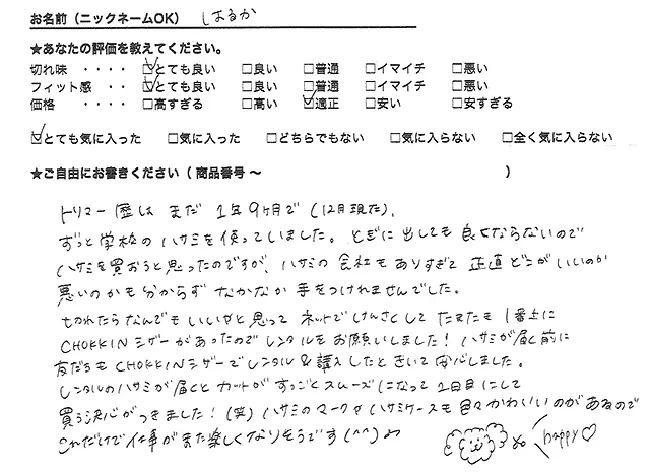 お名前（ニックネームOK） しはるか
★あなたの評価を教えてください。
切れ味 ・・・・ ☑とても良い □良い □普通 □イマイチ □悪い
フィット感 ・・ ☑とても良い □良い □普通 □イマイチ □悪い
価格 ・・・・ □高すぎる □高い ☑適正 □安い □安すぎる
☑とても気に入った □気に入った □どちらでもない □気に入らない □全く気に入らない
★ご自由にお書きください（ 商品番号 〜 ）
トリマー歴は まだ 1年9ヶ月で（12月現在）、
ずっと学校のハサミを使っていました。とぎに出しても良くならないので
ハサミを買おうと思ったのですが、ハサミの会社もありすぎて 正直どこがいいのか
悪いのかも分からず なかなか 手をつけれませんでした。
切れたらなんでもいいやと思って ネットでけんさくして たまたま 1番上に
CHOKKINシザーがあったので レンタルをお願いしました！ ハサミが届く前に
友だちも CHOKKINシザーで レンタル＆購入したときいて 安心しました。
レンタルのハサミが届くと カットが すっごく スムーズになって 1日目にして
買う決心がつきました！（笑）ハサミのマークや ハサミケースも 色々かわいいのがあるので
これだけで 仕事がまた楽しくなりそうです（^^）
happy♡